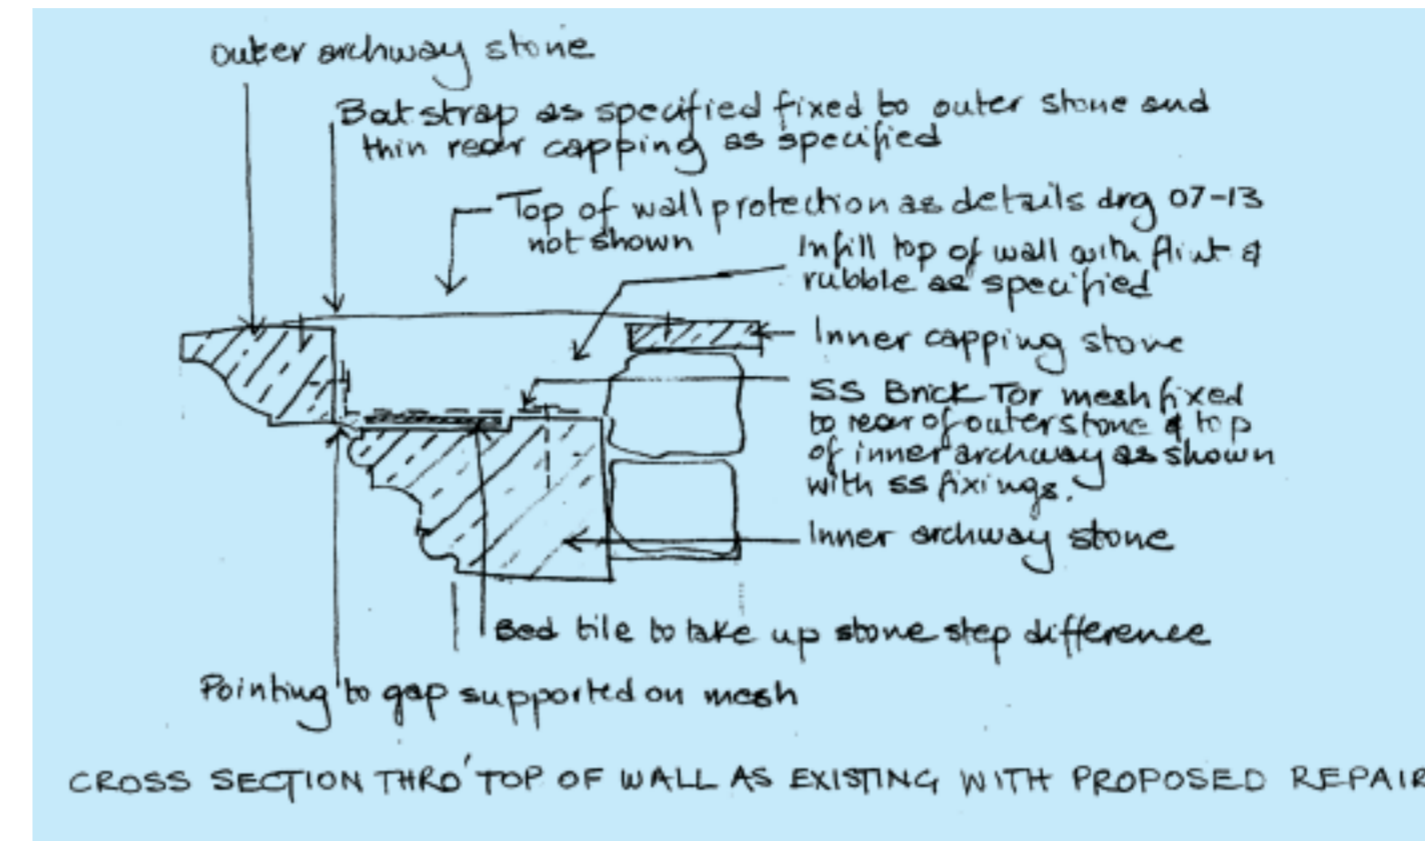 outer archway stone
Bat strap as specified fixed to outer stone and
thin rear capping as specified
Top of wall protection as details drg 07-13
not shown
Infill top of wall with flint &
rubble as specified
Inner capping stone
SS Brick Tor mesh fixed
to rear of outer stone & top
of inner archway as shown
with ss fixings.
Inner archway stone
Bed tile to take up stone step difference
Pointing to gap supported on mesh
CROSS SECTION THRO' TOP OF WALL AS EXISTING WITH PROPOSED REPAIR